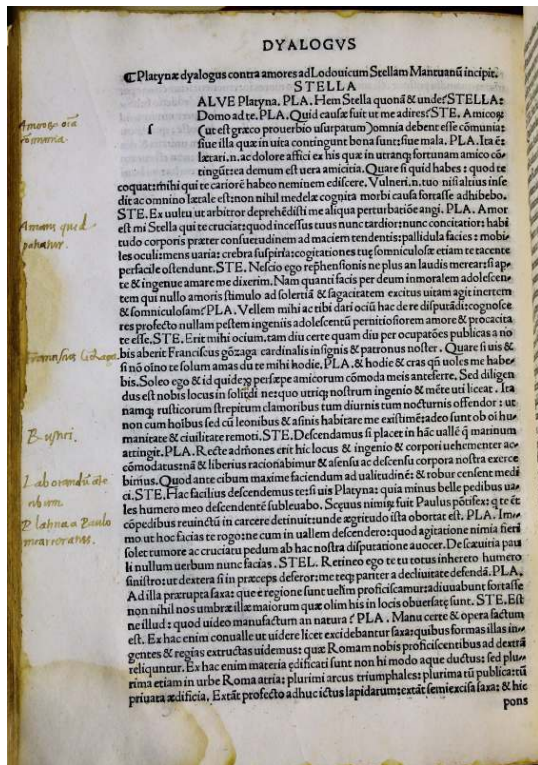 DYALOGVS
¶Platynæ dyalogus contra amores ad Lodouicum Stellam Mantuanū incipit.
STELLA
ſ
ALVE Platyna. PLA. Hem Stella quonā & unde? STELLA:
Domo ad te. PLA. Quid cauſæ fuit ut me adires? STE. Amicoꝝ
(ut eſt græco prouerbio uſurpatum) omnia debent eſſe cōmunia:
ſiue illa quæ in uita contingunt bona ſunt: ſiue mala. PLA. Ita ē:
lætari.n. ac dolore affici ex his quæ in utranqꝫ fortunam amico cō-
tingūt: ea demum eſt uera amicitia. Quare ſi quid habes: quod te
coquat: mihi qui te cariorē habeo neminem ediſcere. Vulneri.n. tuo niſi altius inſe
dit ac omnino lætale eſt: non nihil medelæ cognita morbi cauſa fortaſſe adhibebo.
STE. Ex uultu ut arbitror deprehēdiſti me aliqua perturbatiōe angi. PLA. Amor
eſt mi Stella qui te cruciat: quod inceſſus tuus nunc tardior: nunc incitatior: habi
tudo corporis præter conſuetudinem ad maciem tendentis: pallidula facies: mobi-
les oculi: mens uaria: crebra ſuſpiria: cogitationes tuę ſomniculoſæ etiam te tacente
perfacile oſtendunt. STE. Neſcio ego rep̄henſionis ne plus an laudis merear: ſi ap-
te & ingenue amare me dixerim. Nam quanti facis per deum inmoralem adoleſcen-
tem qui nullo amoris ſtimulo ad ſolertiā & ſagacitatem excitus uitam agit inertem
& ſomniculoſam? PLA. Vellem mihi ac tibi dari ociū hac de re diſputādi: cognoſce
res profecto nullam peſtem ingeniis adoleſcentū pernitioſiorem amore & procacita
te eſſe. STE. Erit mihi ocium, tam diu certe quam diu per occupatōes publicas a no
bis aberit Franciſcus gōzaga cardinalis inſignis & patronus noſter. Quare ſi uis &
ſi nō oīno te ſolum amas du te mihi hodie. PLA. & hodie & cras qn̄ uoles me habe-
bis. Soleo ego & id quidē perſæpe amicorum cōmoda meis anteferre. Sed diligen
dus eſt nobis locus in ſolitudine: quo utriqꝫ noſtrum ingenio & mēte uti liceat. Ita
namqꝫ ruſticorum ſtrepitum clamoribus tum diurnis tum nocturnis offendor: ut
non cum hoībus ſed cū leonibus & aſinis habitare me exiſtimē: adeo ſunt ab oī hu-
manitate & ciuilitate remoti. STE. Deſcendamus ſi placet in hāc uallē q̄ marinum
attringit. PLA. Recte admōnes erit hic locus & ingenio & corpori uehementer ac-
cōmodatus: nā & liberius racionabimur & aſenſu ac deſcenſu corpora noſtra exerce
bimus. Quod ante cibum maxime faciendum ad ualitudinē: & robur cenſent medi
ci. STE. Hac facilius deſcendemus te: ſi uis Platyna: quia minus belle pedibus ua-
les humero meo deſcendentē ſubleuabo. Scęuus nimiꝝ fuit Paulus pōtifex: q te ēt
cōpedibus reuinctū in carcere detinuit: unde ægritudo iſta obortat eſt. PLA. Im-
mo ut hoc facias te rogo: ne cum in uallem deſcendero: quod agitatione nimia fieri
ſolet tumore ac cruciatu pedum ab hac noſtra diſputatione auocer. De ſæuitria pau
li nullum uerbum nunc facias. STEL. Retineo ego te tu totus inhereto humero
ſiniſtro: ut dextera ſi in præceps deferor: me teqꝫ pariter a decliuitate defendā. PLA.
Ad illa prærupta ſaxa: quæ e regione ſunt uelim proficiſcamur: adiuuabunt fortaſſe
non nihil nos umbræ illæ maiorum quæ olim his in locis obuerſatę ſunt. STE. Eſt
ne illud: quod uideo manufactum an natura? PLA. Manu certe & opera factum
eſt. Ex hac enim conualle ut uidere licet excidebantur ſaxa: quibus formas illas in-
gentes & regias extructas uidemus: quæ Romam nobis proficiſcentibus ad dextrā
reliquntur. Ex hac enim materia ędificati ſunt non hi modo aque ductus: ſed plu-
rima etiam in urbe Roma atria: plurimi arcus triumphales: plurima tū publica: tū
priuata ædificia. Extāt profecto adhuc ictus lapidarum: extāt ſemiexciſa ſaxa: & hic
pons
Amans quid
patiatur.
Franciscus Gōzaga
Rustici.
Platina a Paulo